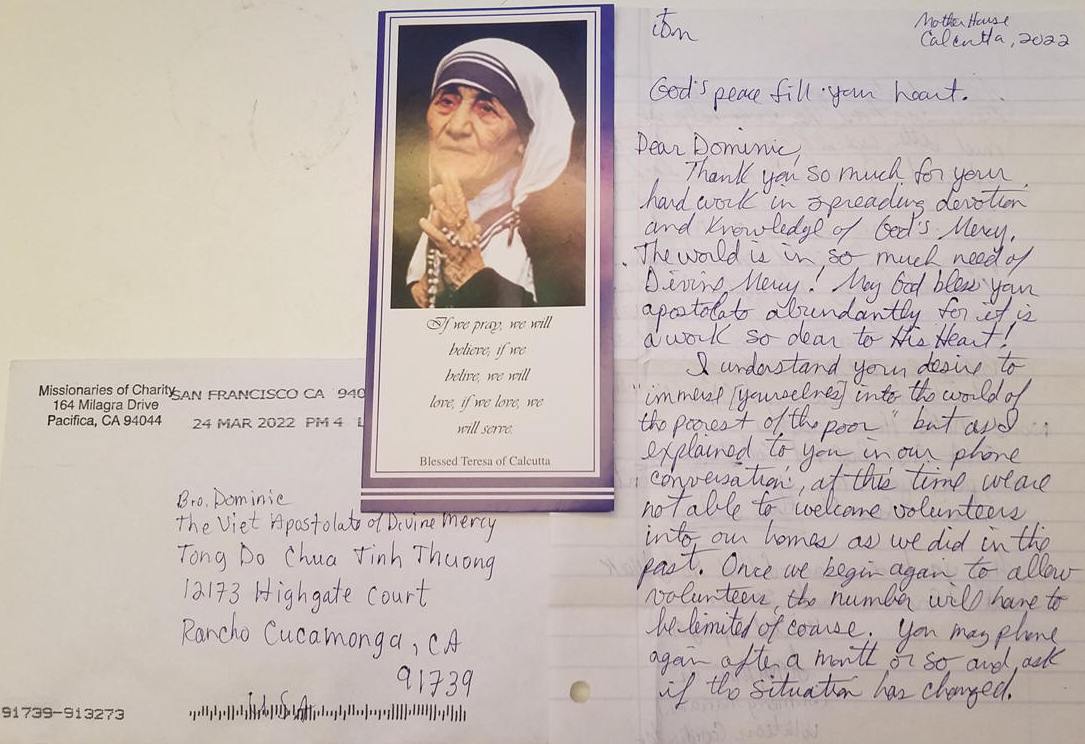 Missionaries of Charity
164 Milagra Drive
Pacifica, CA 94044
SAN FRANCISCO CA 940
24 MAR 2022 PM 4 L
Bro. Dominic
The Viet Apostolate of Divine Mercy
Tong Do Chua Tinh Thuong
12173 Highgate Court
Rancho Cucamonga, CA
91739
USA
91739-913273
If we pray, we will
believe, if we
belive, we will
love, if we love, we
will serve.
Blessed Teresa of Calcutta
Mother House
Calcutta, 2022
God's peace fill your heart.
Dear Dominic,
Thank you so much for your
hard work in spreading devotion
and knowledge of God's Mercy.
The world is in so much need of
Divine Mercy! May God bless your
apostolate abundantly for it is
a work so dear to His Heart!
I understand your desire to
"immerse [yourselves] into the world of
the poorest of the poor" but as I
explained to you in our phone
conversation, at this time we are
not able to welcome volunteers
into our homes as we did in the
past. Once we begin again to allow
volunteers, the number will have to
be limited of course. You may phone
again after a month or so and ask
if the situation has changed.